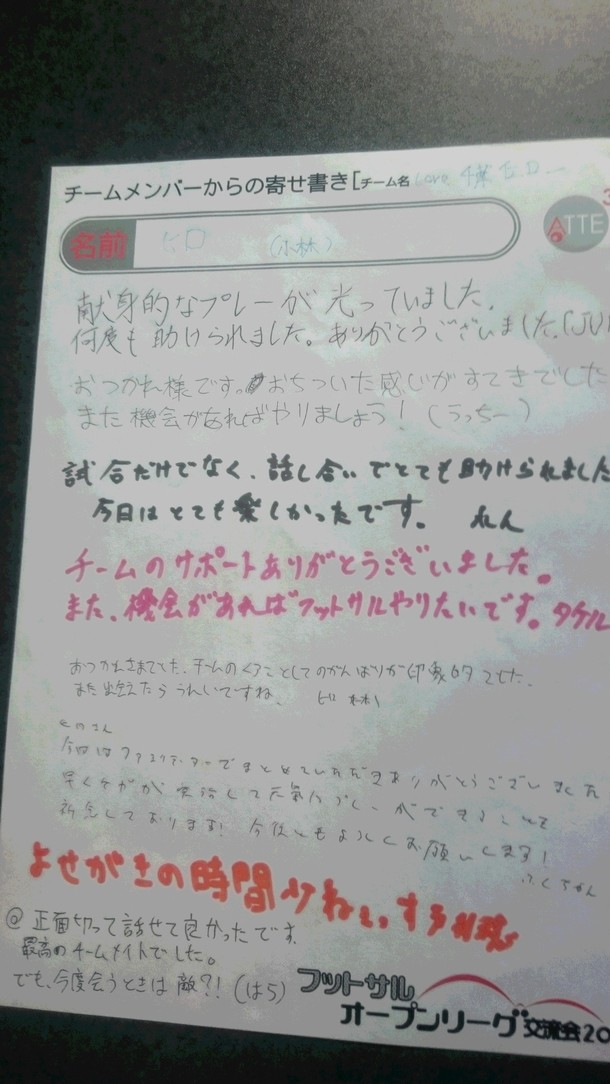 チームメンバーからの寄せ書き[チーム名 Love
名前 ヒロ (小林)
ATTE
献身的なプレーが光っていました。
何度も助けられました。ありがとうございました。(JU
おつかれ様です。おちついた感じがすてきでした
また機会があればやりましょう! (うっちー)
試合だけでなく、話し合いでとても助けられました
今日はとても楽しかったです。 れん
チームのサポートありがとうございました。
また、機会があればフットサルやりたいです。タケル
おつかれさまでした、チームの としてのがんばりが印象的でした。
また出会えたらうれしいですね、 ヒロ
今回はファシリテーターでまとめていただきありがとうございました
早くケガが完治して元気な が できることを
祈念しております! 今後ともよろしくお願いします!
ふくちゃん
よせがきの時間
@ 正面切って話せて良かったです。
最高のチームメイトでした。
でも、今度会うときは敵?! (はら)
フットサル
オープンリーグ交流会20